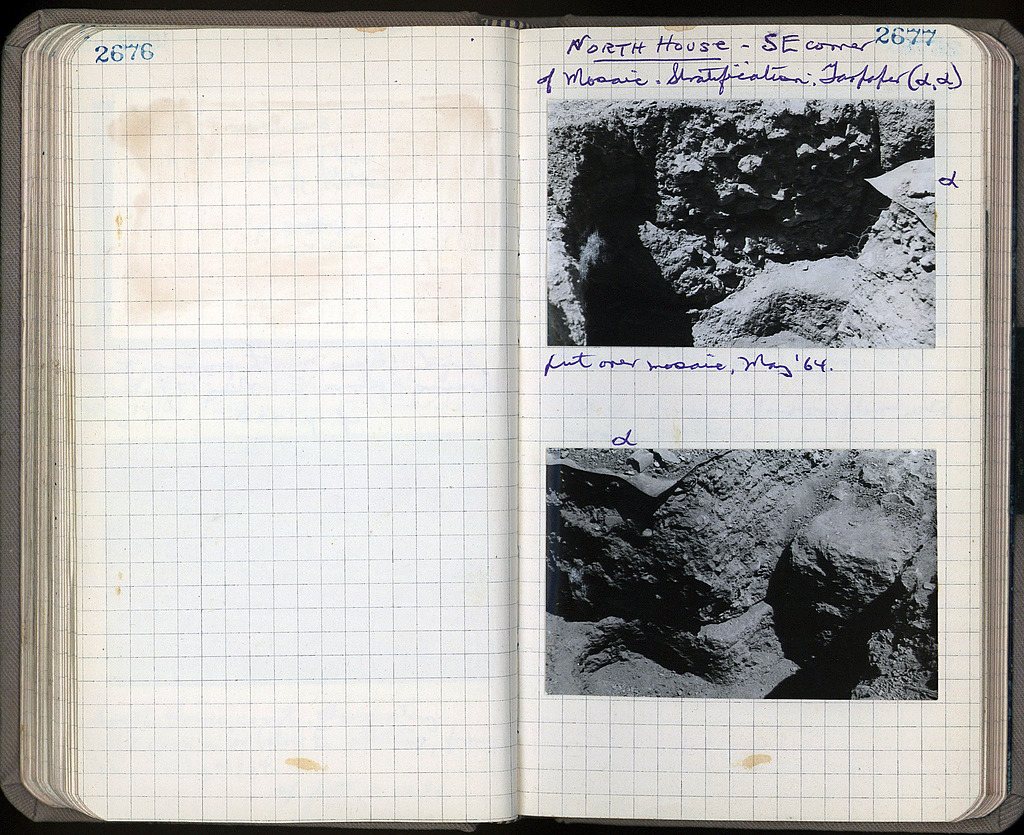 2676
2677
NORTH HOUSE - SE corner
of Mosaic. Stratification. Tarpaper (α, α)
α
put over mosaic, May '64.
α